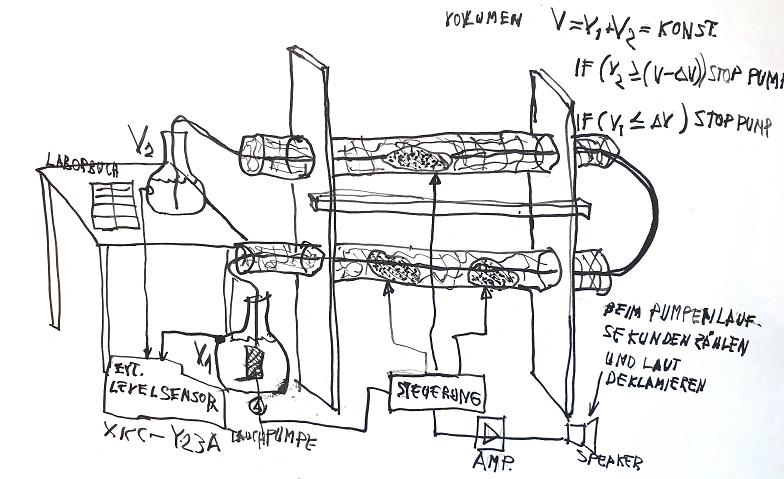 VOLUMEN V=V₁+V₂=KONST.
IF (V₂≥(V-ΔV)) STOP PUMP
IF (V₁≤ΔV) STOP PUMP
V₂
LABORBUCH
V₁
EXT.
LEVELSENSOR
XKC-Y23A
TAUCHPUMPE
STEUERUNG
AMP.
SPEAKER
BEIM PUMPENLAUF-
SEKUNDEN ZÄHLEN
UND LAUT
DEKLAMIEREN